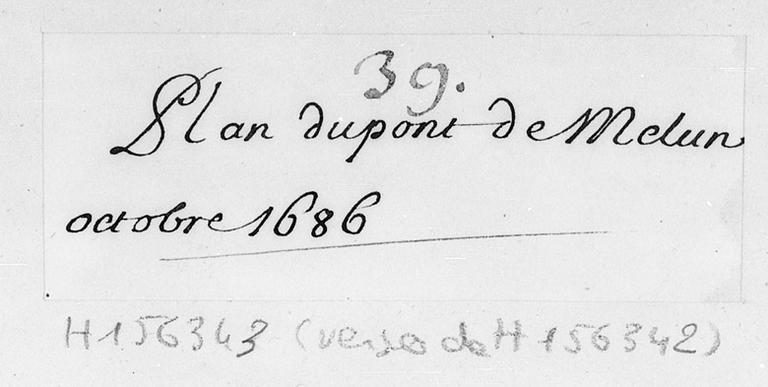 39.
Plan du pont de Melun
octobre 1686
H 156343 (verso de H 156342)